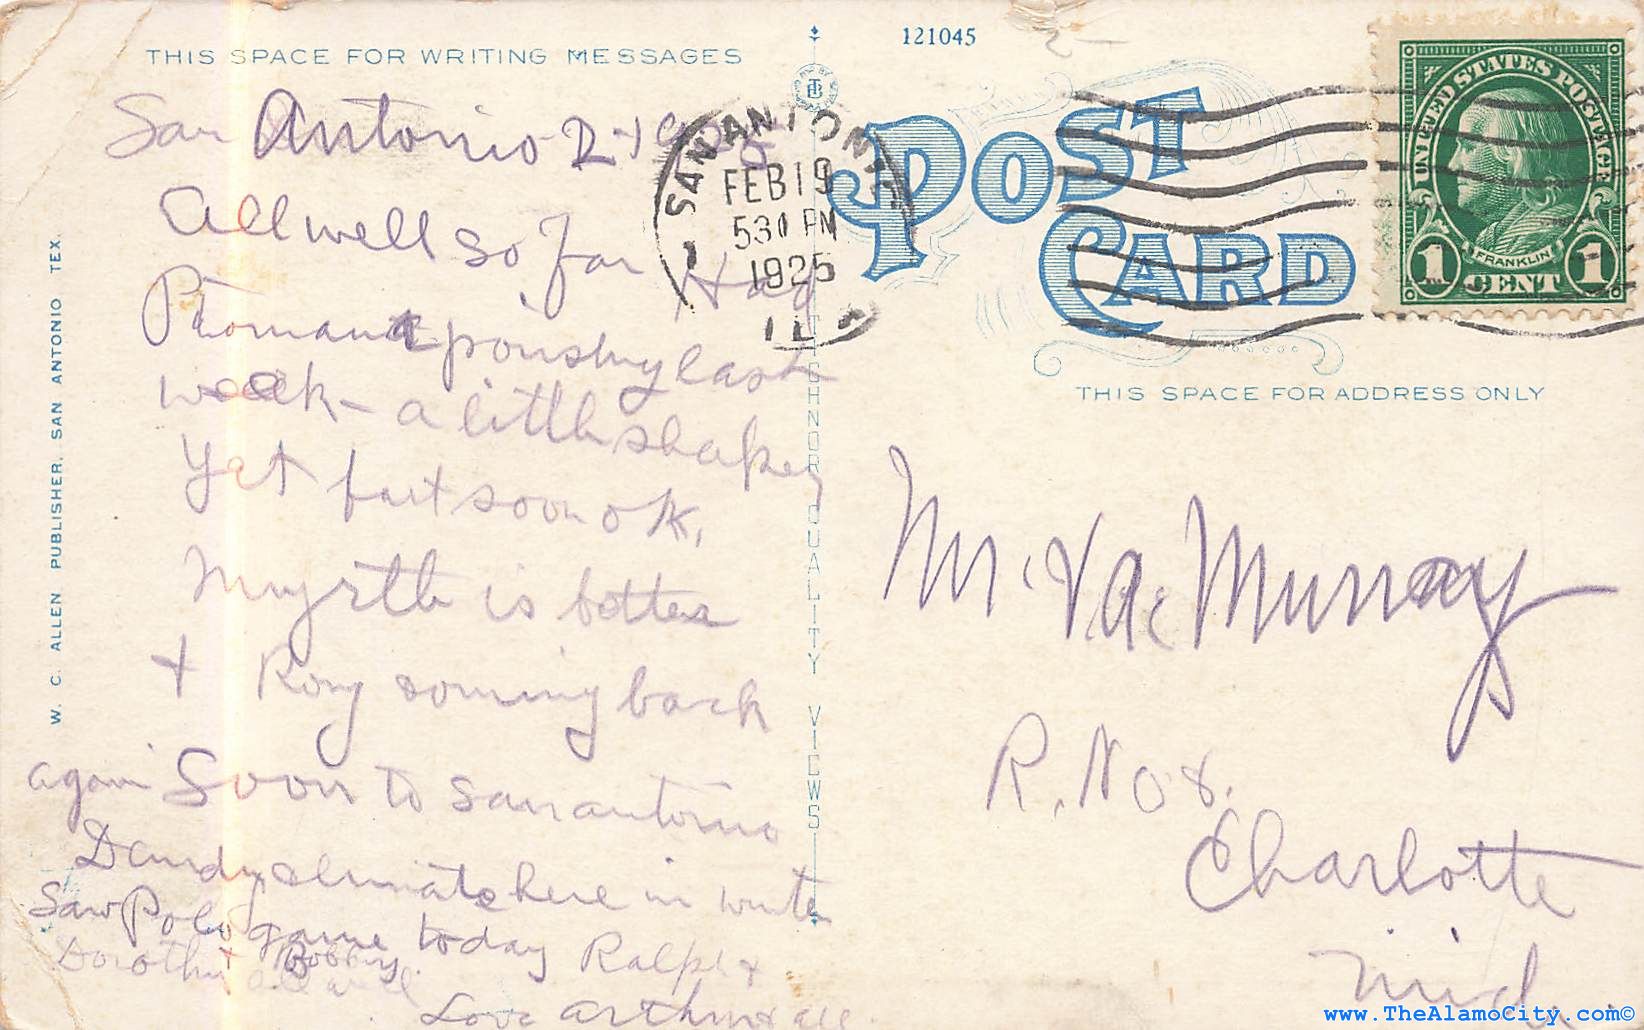 THIS SPACE FOR WRITING MESSAGES
San Antonio 2-19
All well so far Had
Ptomaine poisning last
week - a little shakey
yet but soon OK.
Myrtle is better
+ Roy coming back
again Soon to San antonio
Dandy climate here in winter
Saw Polo game today Ralph +
Dorothy + Bobby all well
Love Arthur + all.
W. C. ALLEN PUBLISHER, SAN ANTONIO TEX.
121045
POST CARD
SAN ANTONIO
FEB 19
530 PM
1925
UNITED STATES POSTAGE
FRANKLIN
1 CENT 1
THIS SPACE FOR ADDRESS ONLY
QUALITY VIEWS
Mr. Mc Murray
R. No 8.
Charlotte
Mich
www.TheAlamoCity.com©